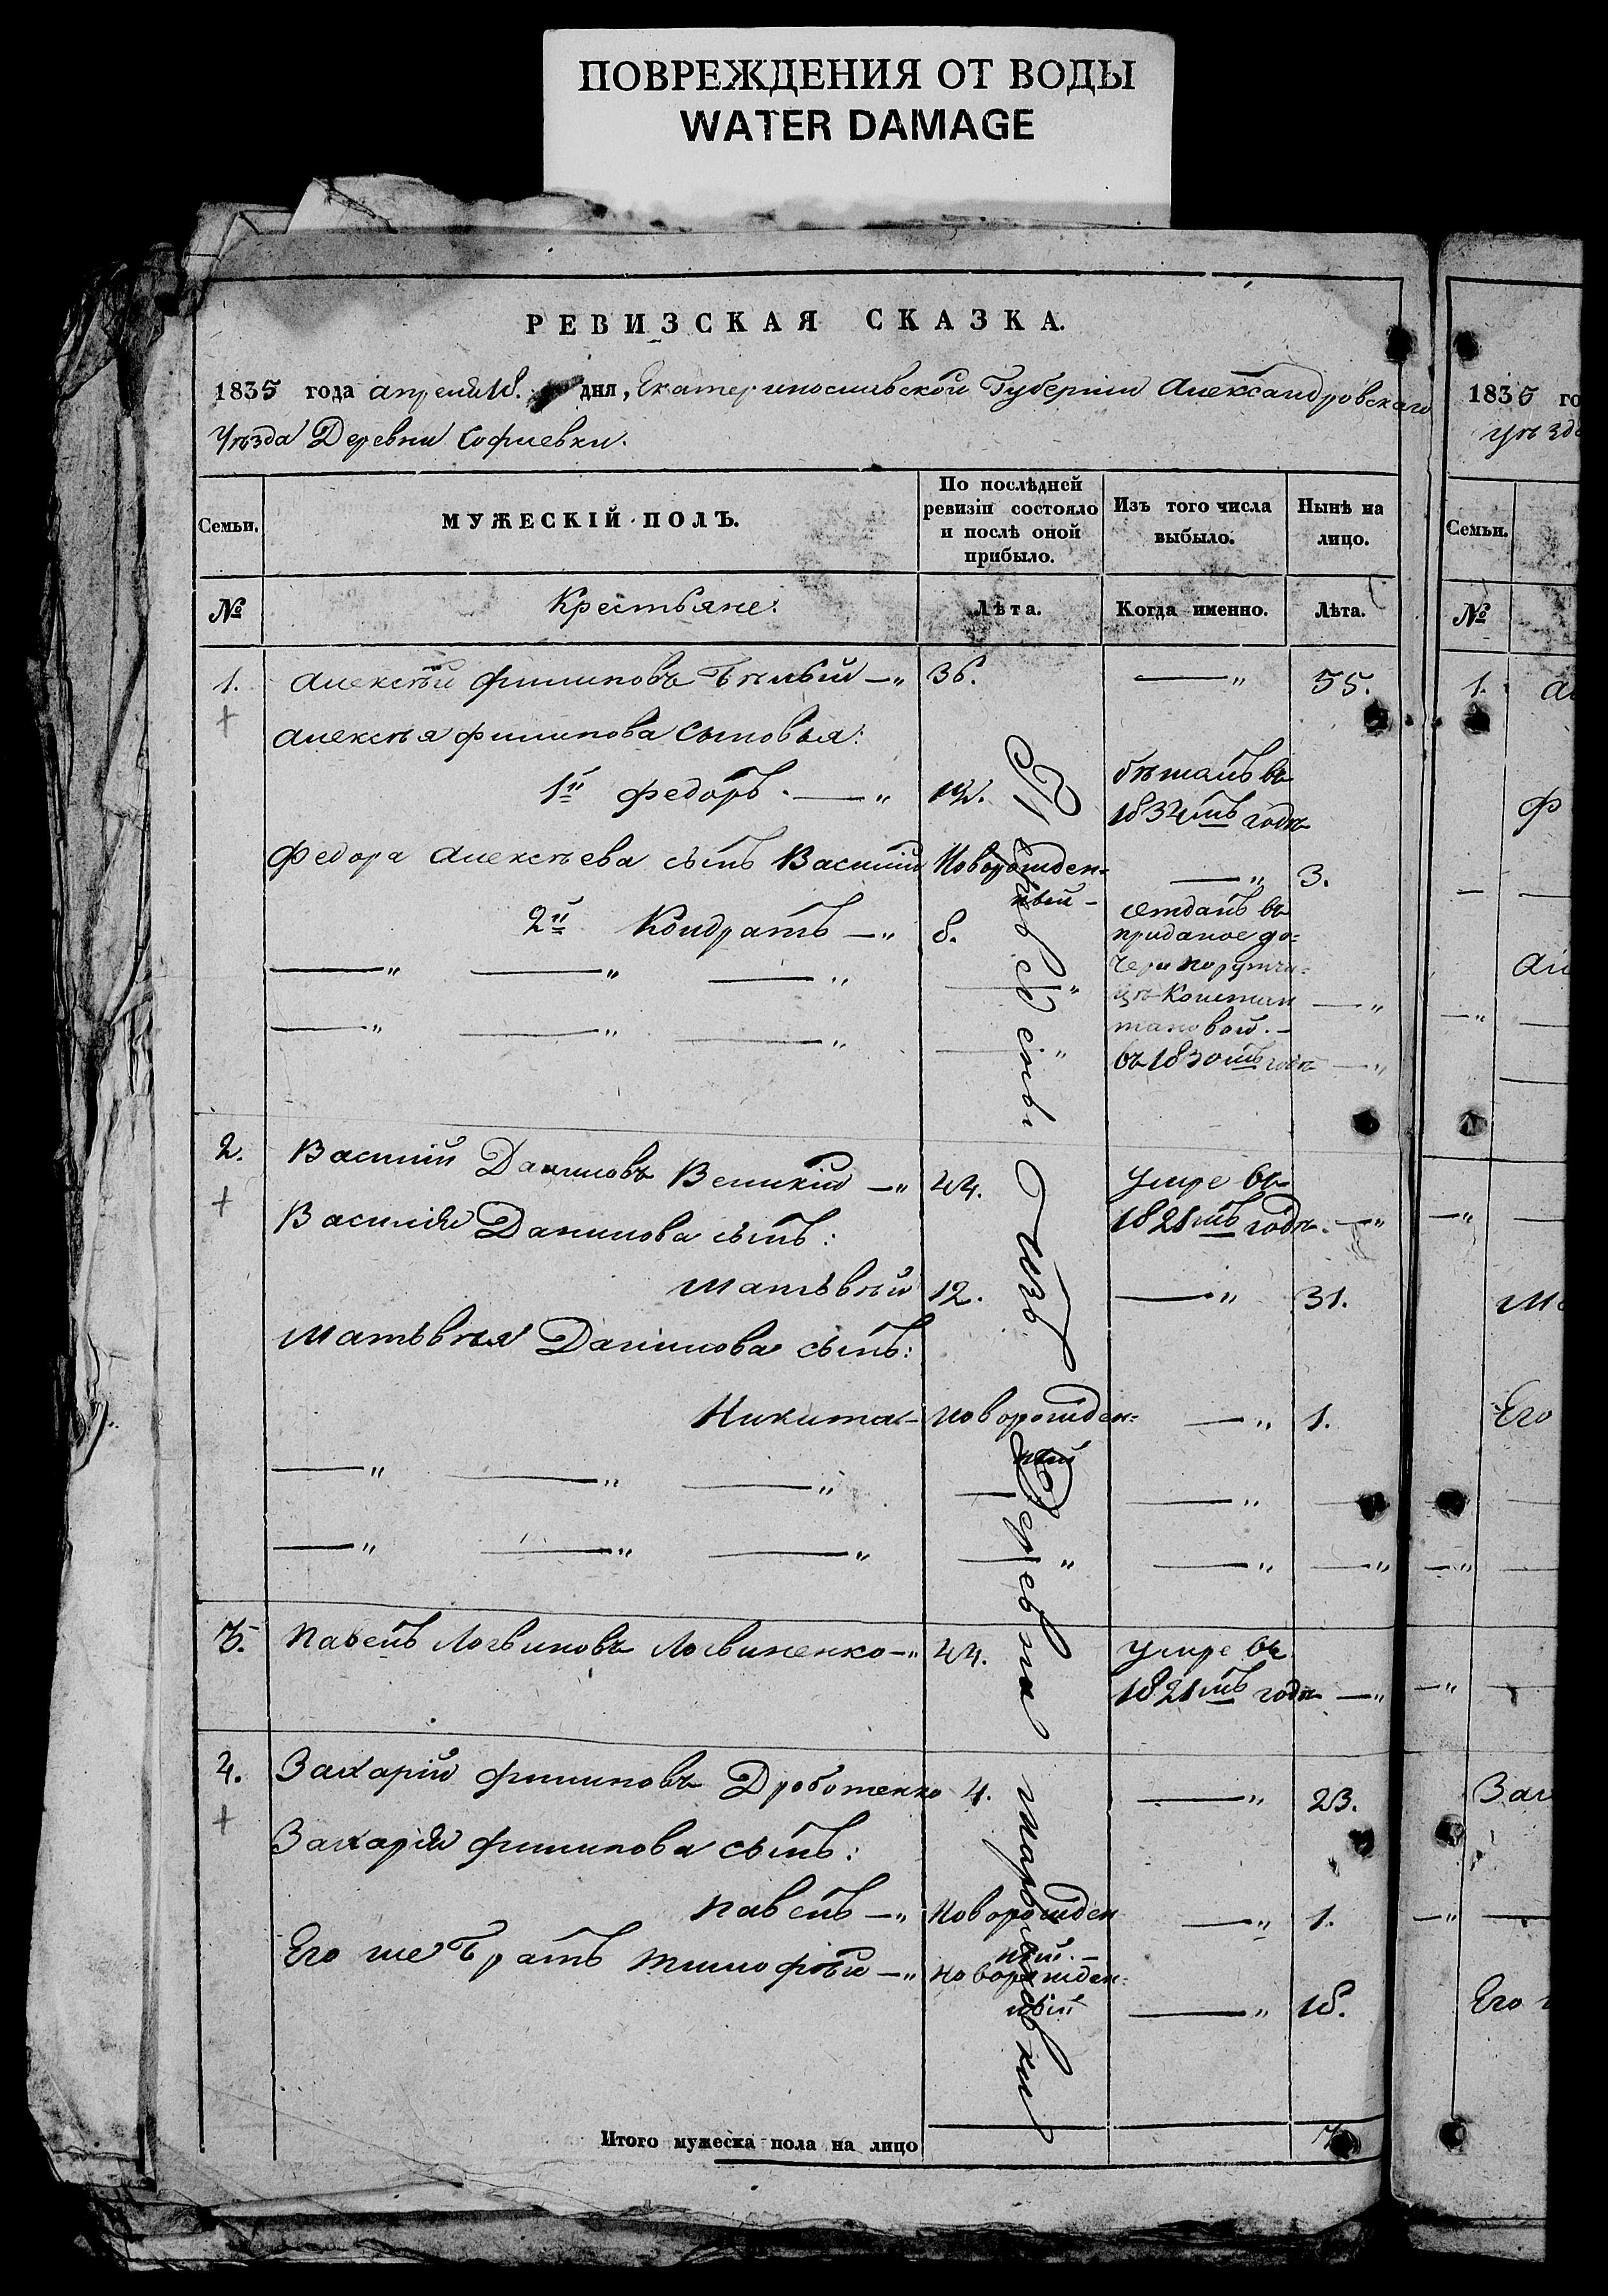 ПОВРЕЖДЕНИЯ ОТ ВОДЫ
WATER DAMAGE
РЕВИЗСКАЯ СКАЗКА.
1835 года апреля 18. дня, Екатеринославской Губернии Александровскаго
Уѣзда Деревни Софиевки.
Семьи.
МУЖЕСКІЙ ПОЛЪ.
По послѣдней ревизіи состояло и послѣ оной прибыло.
Изъ того числа выбыло.
Нынѣ на лицо.
№
Крестьяне:
Лѣта.
Когда именно.
Лѣта.
1. Алексѣй Филиповъ Бѣлый —„ 36. —„ 55.
Алексѣя Филипова Сыновья:
1й Федоръ. —„ 14. бѣжалъ въ 1834мъ годѣ
Федора Алексѣева сынъ Василий Новорожден= ный — —„ 3.
2й Кондратъ —„ 8. отданъ въ приданое до= чери порутчи= цѣ Констан тиновой. — въ 1830мъ годѣ —„
2. Василий Даниловъ Великий —„ 44. умре въ 1821мъ годѣ. —„
Василия Данилова сынъ:
Матьвѣй 12. —„ 31.
Матьвѣя Данилова сынъ:
Никита — новорожден= ный —„ 1.
3. Павелъ Логвиновъ Логвиненко —„ 44. умре въ 1821мъ годѣ —„
4. Захарий Филиповъ Дроботенко 4. —„ 23.
Захария Филипова сынъ:
Павелъ —„ Новорожден ный. — —„ 1.
Его же Братъ Тимофѣй —„ новорожден= ный —„ 18.
Переведены изъ Деревни
Итого мужеска пола на лицо 7
1835 го
уѣзд
Семьи.
№
1. Ал
Ф
Ал
Ма
Его
Зах
Его